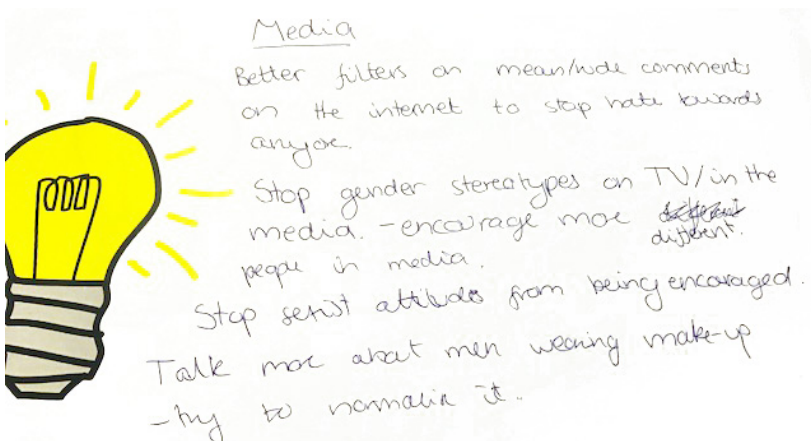 Media
Better filters on mean/rude comments
on the internet to stop hate towards
anyone.
Stop gender stereotypes on TV/in the
media. - encourage more different.
people in media.
Stop sexist attitudes from being encouraged.
Talk more about men wearing make-up
- try to normalise it.